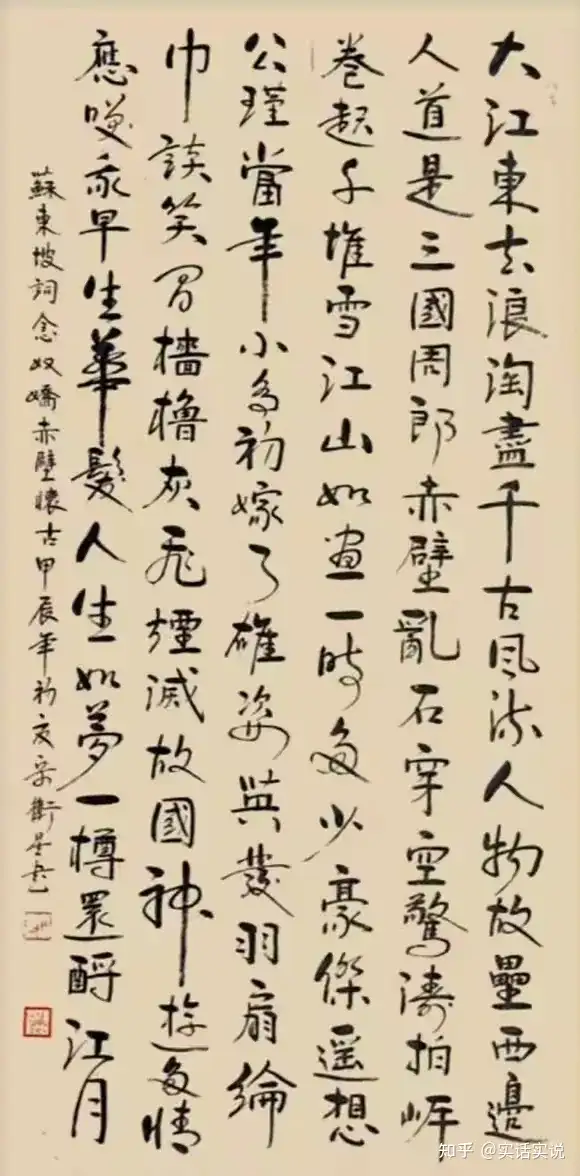 大江東去浪淘盡千古風流人物故壘西邊
人道是三國周郎赤壁亂石穿空驚濤拍岸
卷起千堆雪江山如畫一時多少豪傑遥想
公瑾當年小喬初嫁了雄姿英發羽扇綸
巾談笑间檣櫓灰飛煙滅故國神遊多情
應嘆我早生華髮人生如夢一樽還酹江月
蘇東坡詞念奴嬌赤壁懷古甲辰年初夏
知乎 @实话实说